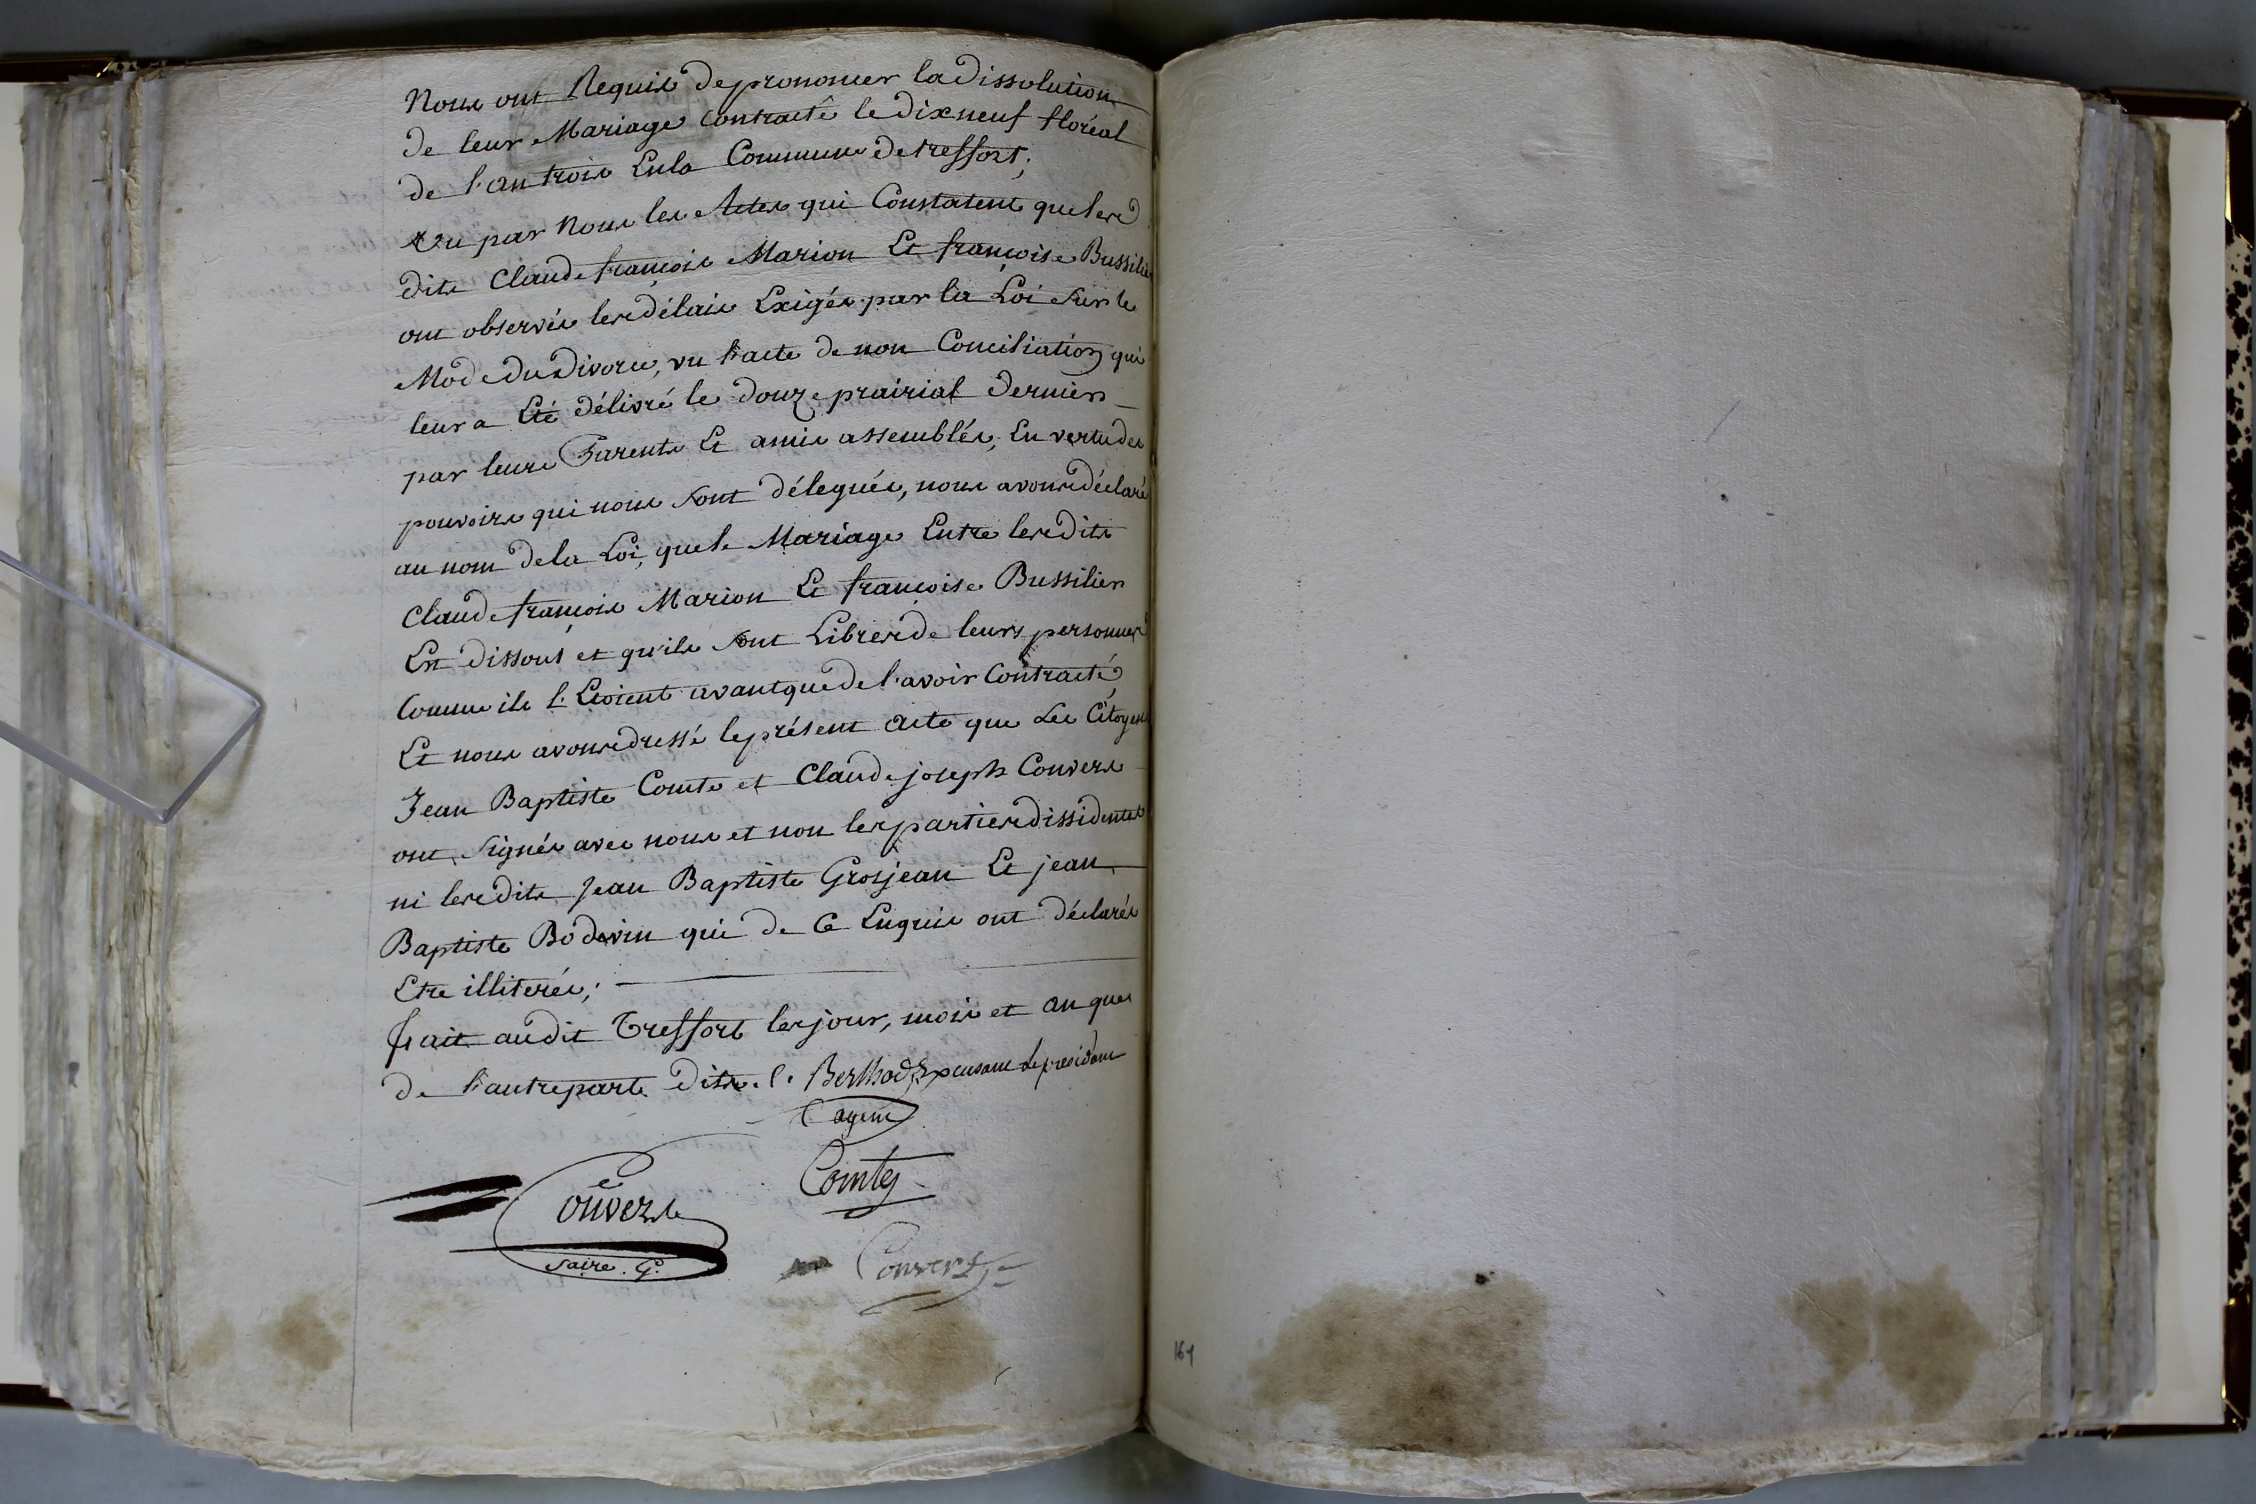 Nous ont Requis de prononcer la dissolution
de leur Mariage Contracté le dix neuf floréal
de l'an trois En la Commune de treffort;
Vu par Nous les Actes qui Constatent que les
dits Claude françois Marion Et françoise Bussilier
ont observés les délais Exigés par la Loi sur le
Mode du Divorce, vu l'acte de non Conciliation qui
leur a Eté délivré le douze prairial dernier
par leurs Parents Et amis assemblés, En vertu des
pouvoirs qui nous sont délegués, nous avons déclaré
au nom de la Loi, que le Mariage Entre les dits
Claude françois Marion Et françoise Bussilier
Est dissout et qu'ils sont Libres de leurs personnes
Comme ils l'Etoient avant que de l'avoir Contracté
Et nous avons dressé le présent acte que Les Citoyens
Jean Baptiste Comte et Claude joseph Convers
ont signés avec nous et non les parties dissidentes
ni les dits Jean Baptiste Grosjean Et jean
Baptiste Bodvin qui de Ce Enquis ont déclarés
Etre illiterés;
fait audit Treffort les jour, mois et an que
de l'autre part Dits. C. Berthod Excusant Le president
agent
Comte
Convers
saire. G.
Convers
164